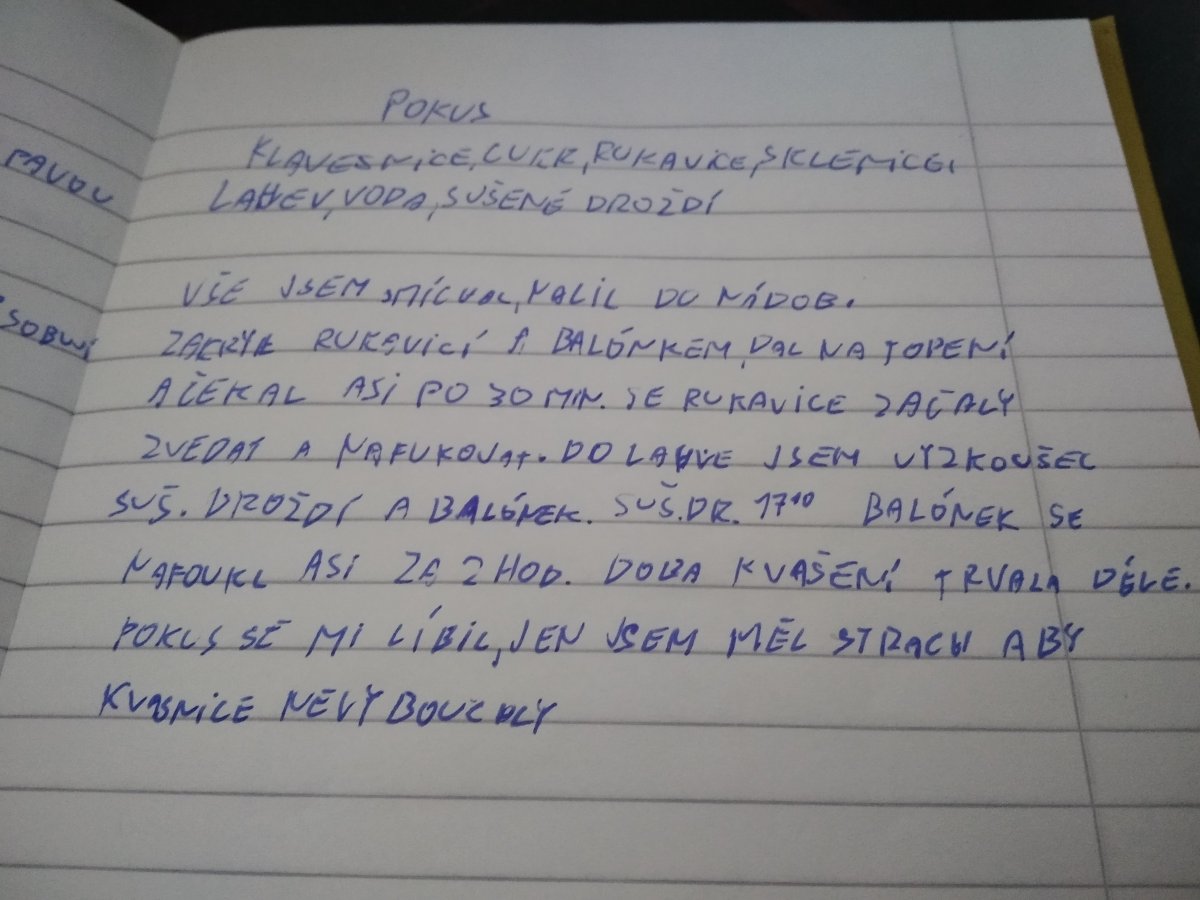 POKUS
KLAVESNICE, CUKR, RUKAVICE, SKLENICE,
LAHEV, VODA, SUŠENÉ DROŽDÍ
PAVOU
VŠE JSEM SMÍCHAL, NALIL DO NÁDOB.
SOBUJ
ZAKRYL RUKAVICÍ A BALÓNKEM, DAL NA TOPENÍ
A ČEKAL ASI PO 30 MIN. SE RUKAVICE ZAČALY
ZVEDAT A NAFUKOVAT. DO LAHVE JSEM VYZKOUŠEL
SUŠ. DROŽDÍ A BALÓNEK. SUŠ. DR. 17¹⁰ BALÓNEK SE
NAFOUKL ASI ZA 2 HOD. DOBA KVAŠENÍ TRVALA DÉLE.
POKUS SE MI LÍBIL, JEN JSEM MĚL STRACH ABY
KVASNICE NEVYBOUCHLY